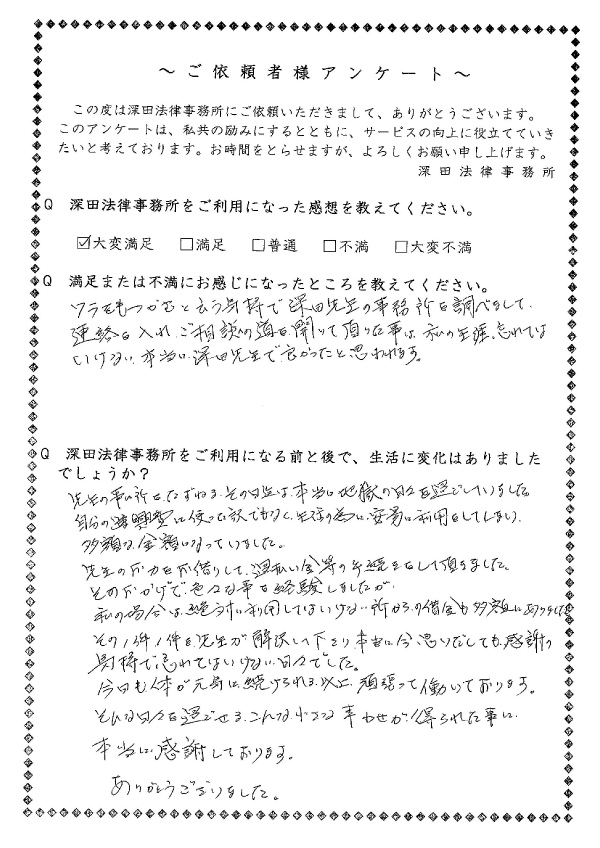 ～ご依頼者様アンケート～
この度は深田法律事務所にご依頼いただきまして、ありがとうございます。
このアンケートは、私共の励みにするとともに、サービスの向上に役立てていき
たいと考えております。お時間をとらせますが、よろしくお願い申し上げます。
深田法律事務所
Q 深田法律事務所をご利用になった感想を教えてください。
☑大変満足 □満足 □普通 □不満 □大変不満
Q 満足または不満にお感じになったところを教えてください。
ワラをもつかむと云う気持で深田先生の事務所を調べまして、
連絡を入れ、ご相談の道を開いて頂けた事は、私の生涯、忘れては
いけない、本当に深田先生で良かったと思われます。
Q 深田法律事務所をご利用になる前と後で、生活に変化はありました
でしょうか？
先生の事ム所をたずねる、その日迄は、本当に地獄の日々を過ごしていました
自分の遊興費に使った訳でもなく、生活の為に、安易に利用をしてしまい、
多額な金額になっていました。
先生のお力をお借りして、過払い金等の手続きをして頂きました。
そのおかげで色々な事を経験しましたが、
私の場合は、絶対に利用してはいけない所からの借金も多額にありました
その1件1件を先生が解決して下さり、本当に今思いだしても、感謝の
気持で忘れてはいけない日々でした。
今日も体が元気に続けられる以上、頑張って働いております。
そんな日々を過ごせる、こんな小さな幸わせが得られた事に、
本当に感謝しております。
ありがとうございました。